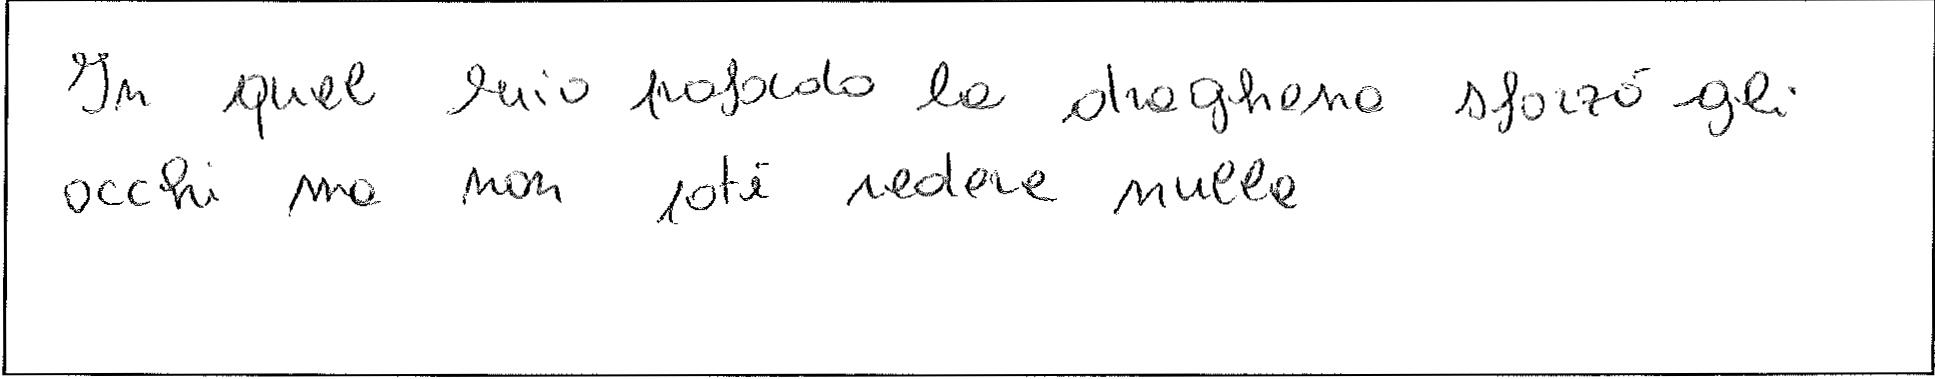 In quel buio profondo la draghena sforzò gli
occhi ma non poté vedere nulla